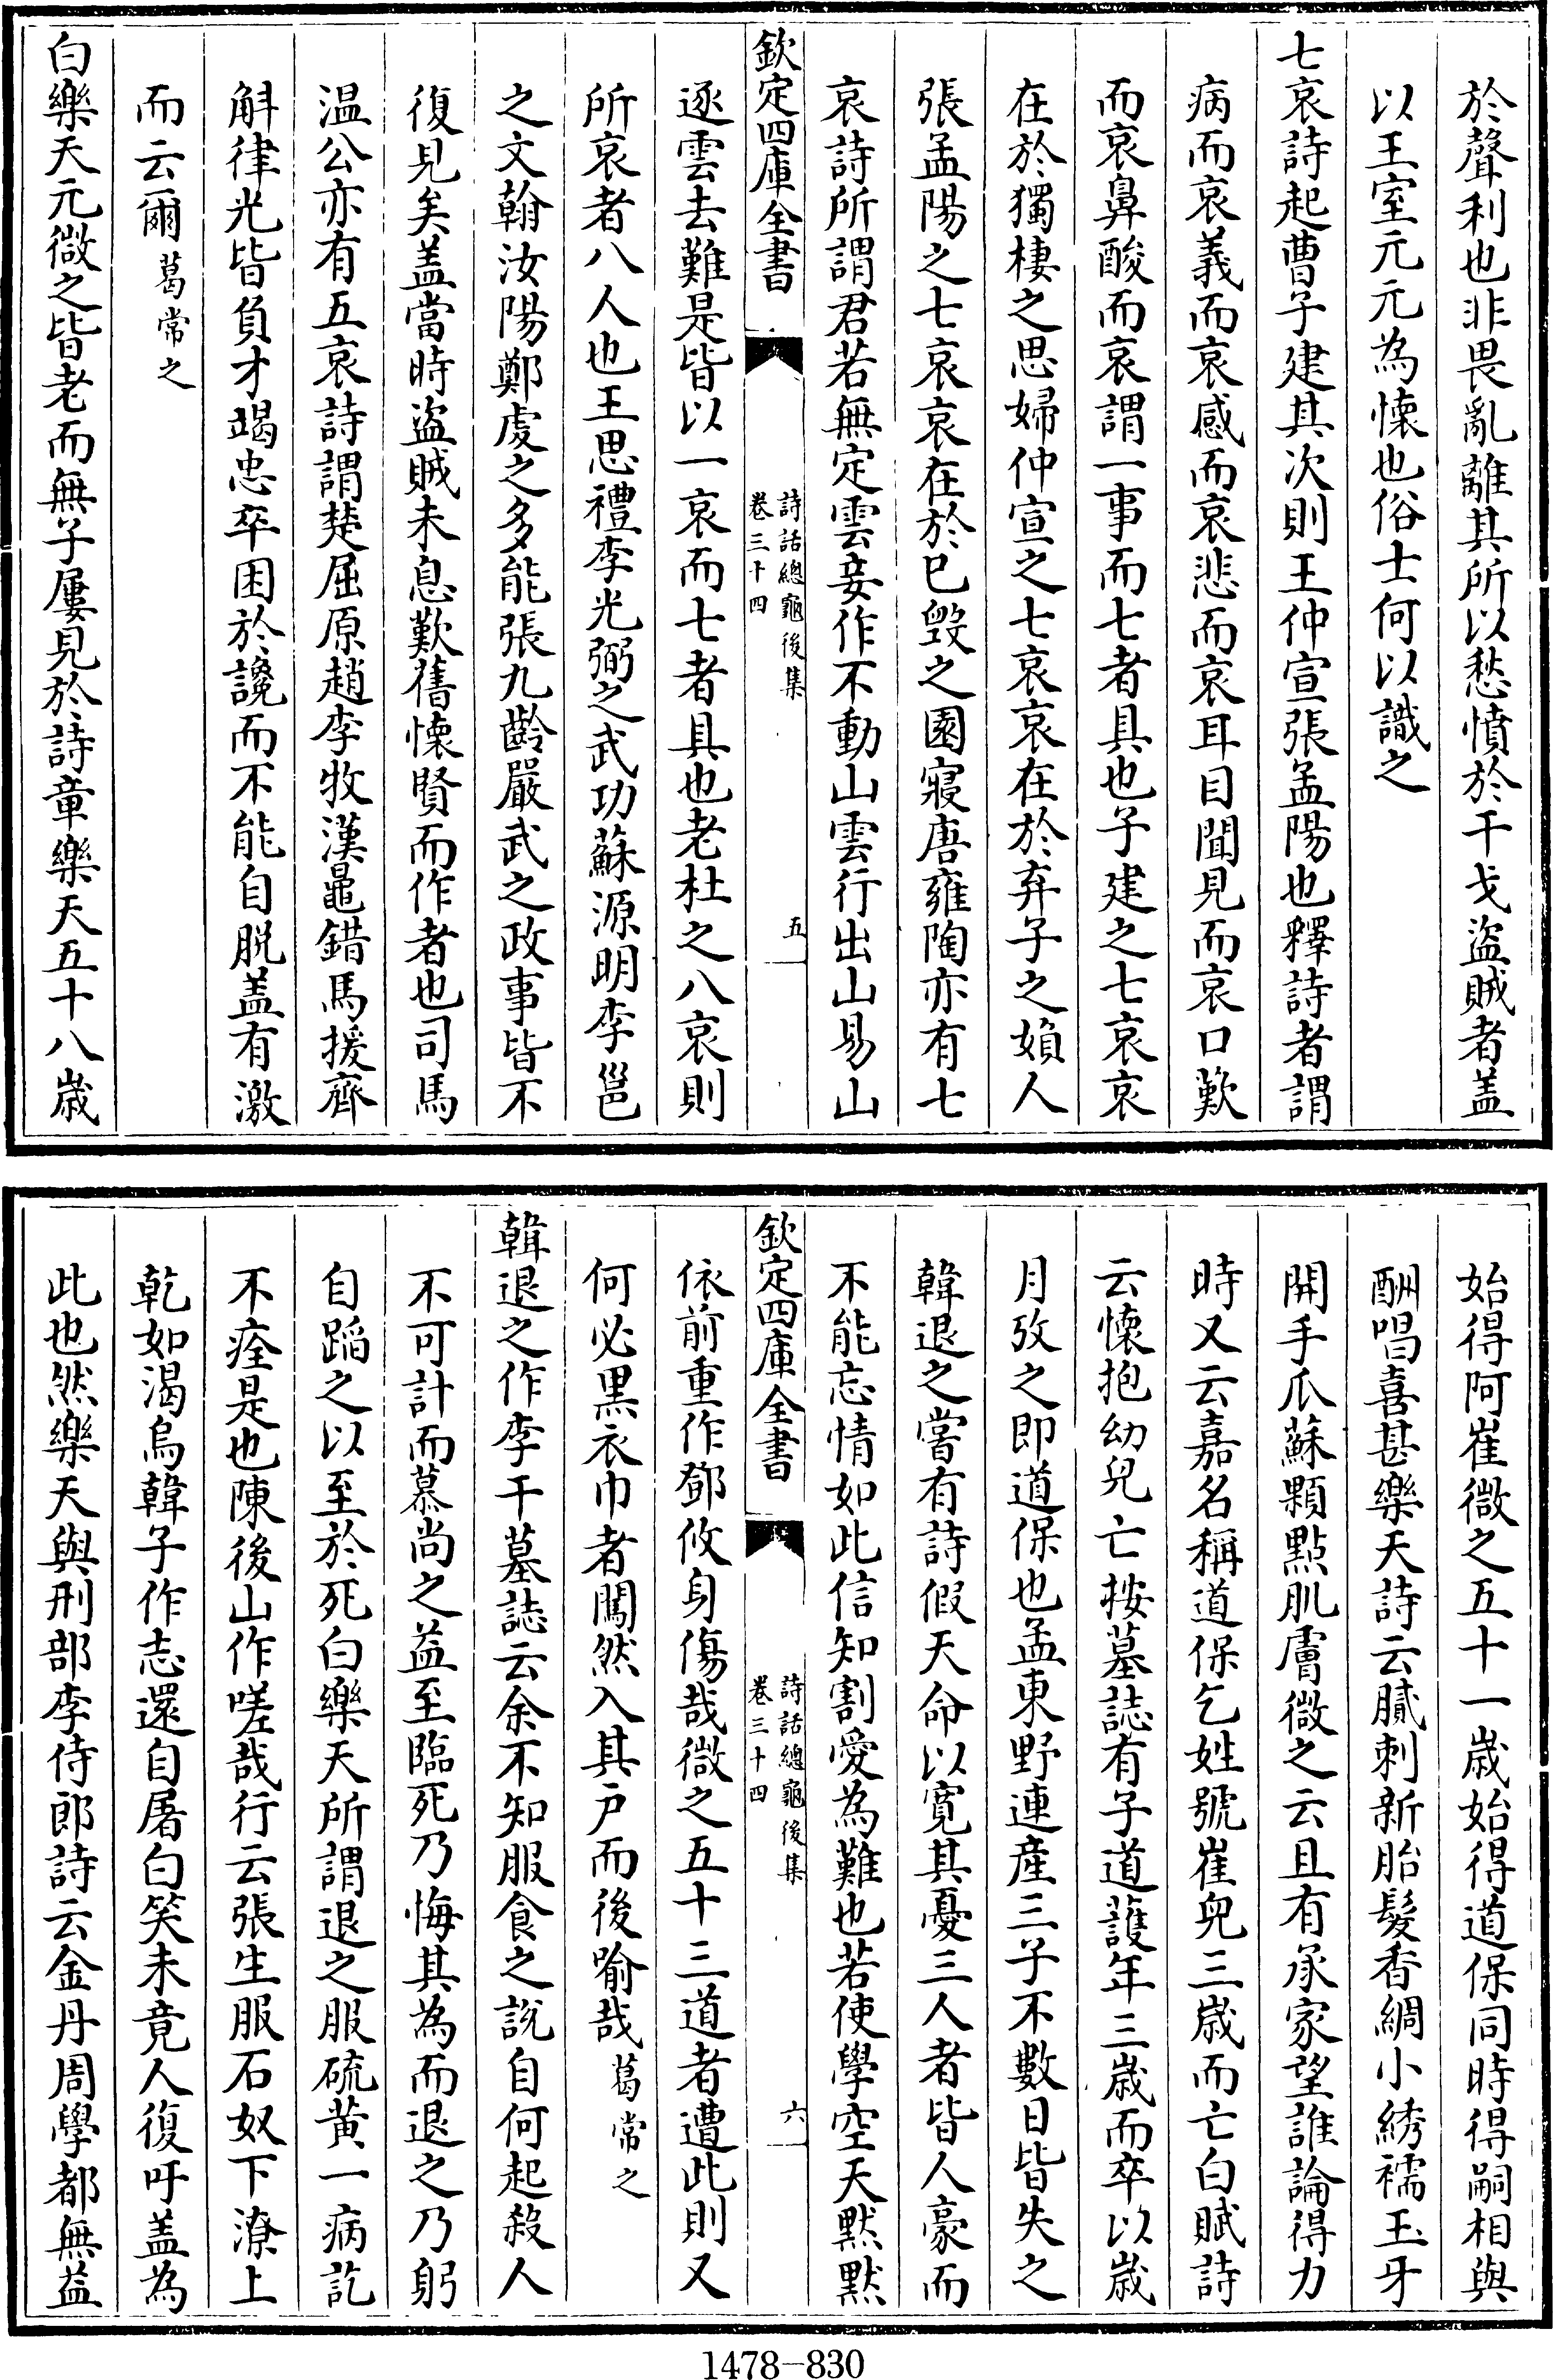 於聲利也非畏亂離其所以愁憤於干戈盜賊者盖
以王室元元為懷也俗士何以識之
七哀詩起曹子建其次則王仲宣張孟陽也釋詩者謂
病而哀義而哀感而哀悲而哀耳目聞見而哀口歎
而哀鼻酸而哀謂一事而七者具也子建之七哀哀
在於獨棲之思婦仲宣之七哀哀在於弃子之婦人
張孟陽之七哀哀在於已毀之園寢唐雍陶亦有七
哀詩所謂君若無定雲妾作不動山雲行出山易山
欽定四庫全書
詩話總龜後集
卷三十四
五
逐雲去難是皆以一哀而七者具也老杜之八哀則
所哀者八人也王思禮李光弼之武功蘇源明李邕
之文翰汝陽鄭虔之多能張九齡嚴武之政事皆不
復見矣盖當時盜賊未息歎舊懷賢而作者也司馬
温公亦有五哀詩謂楚屈原趙李牧漢鼂錯馬援齊
斛律光皆負才竭忠卒困於讒而不能自脱盖有激
而云爾葛常之
白樂天元微之皆老而無子屢見於詩章樂天五十八歲
始得阿崔微之五十一歲始得道保同時得嗣相與
酬唱喜甚樂天詩云膩剃新胎髮香繃小綉襦玉牙
開手爪蘇顆點肌膚微之云且有承家望誰論得力
時又云嘉名稱道保乞姓號崔兒三歲而亡白賦詩
云懷抱幼兒亡按墓誌有子道護年三歲而卒以歲
月攷之即道保也孟東野連產三子不數日皆失之
韓退之嘗有詩假天命以寛其憂三人者皆人豪而
不能忘情如此信知割愛為難也若使學空天默默
欽定四庫全書
詩話總龜後集
卷三十四
六
依前重作鄧攸身傷哉微之五十三道者遭此則又
何必黑衣巾者闖然入其户而後喻哉葛常之
韓退之作李干墓誌云余不知服食之說自何起殺人
不可計而慕尚之益至臨死乃悔其為而退之乃躬
自蹈之以至於死白樂天所謂退之服硫黃一病訖
不痊是也陳後山作嗟哉行云張生服石奴下潦上
乾如渴烏韓子作志還自屠白笑未竟人復吁盖為
此也然樂天與刑部李侍郎詩云金丹周學都無益
1478-830